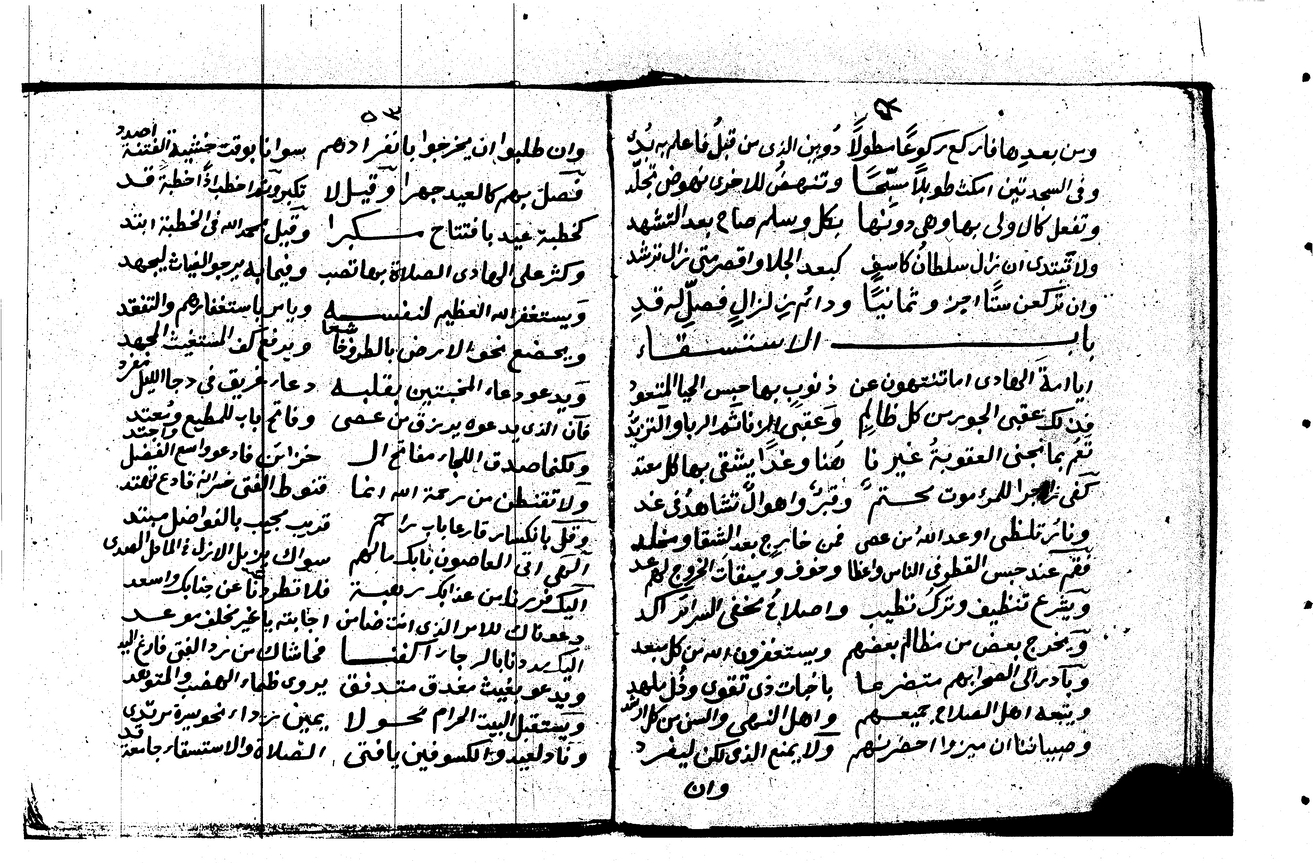 ومن بعدها فاركع ركوعًا مطولًا دوين الذي من قبل فاعلم به تد
وفي السجدتين امكث طويلًا مسبحًا وتنهض للاخرى نهوض تجلد
وتفعل كالاولى بها وهي دونها بكل وسلم صاح بعد التشهد
ولا تبتدى ان زال سلطان كاسف كبعد الجلا واقصر متى زال ترشد
وان تركعن ستا اجز وثمانيًا ودائم زلزال فصل له قد
باب الاستسقاء
ايا امة الهادى اما تنتهون عن ذنوب بها حبس الحيا المتعود
فذلك عقبى الجور من كل ظالم وعقبى الزنا ثم الربا والتزيد
نعم بما نجنى العقوبة غير نا هنا وغدًا يشقى بها كل معتد
كفى زاجرا للمرء موت محتم وقبر واهوال تشاهد في غد
ونار تلظى اوعد الله من عصى فمن خارج بعد الشقا ومخلد
فقم عند حبس القطر في الناس واعظا وخوف وميقات الخروج لهم عد
ويشرع تنظيف وترك تطيب واصلاح مخفى السرائر اكد
ويخرج بعض من مظالم بعضهم ويستغفرون الله من كل مبعد
وبادر الى الصحرا بهم متضرعا باخبات ذى تقوى وقل بلهد
ويتبعه اهل الصلاح جميعهم واهل النهى والسن من كل ارشد
وصبياننا ان ميزوا احضرنهم ولا يمنع الذمى لكن ليفرد
وان
٥٣
وان طلبوا ان يخرجوا بانفرادهم سوانا بوقت خشية الفتنة اصدد
فصل بهم كالعيد جهرا وقيل لا تكبر وبعدا اخطب اذا خطبة قد
كخطبة عيد بافتتاح مكبرا وقيل بحمد الله في الخطبة ابتد
وكثر على الهادى الصلاة بها تصب وفيما به يرجو الغياث ليجهد
ويستغفر الله العظيم لنفسه ويامر باستغفارهم والتفقد
ويخضع نحو الارض بالطرف خاشعا ويرفع كف المستغيث المجهد
ويدعو دعاء المخبتين بقلبه دعاء غريق في دجا الليل مفرد
فان الذى يدعوه يرزق من عصى وفاتح باب للمطيع ومعتد
ولكنما صدق اللجاء مفاتح ال خزائن فادعو واسع الفضل واجتد
ولا تقنطن من رحمة الله انما قنوط الفتى خسرانه فادع تهتد
وقل بانكسار قارعا باب راحم قريب مجيب بالفواضل مبتد
الهى اتى العاصون بابك مالهم سواك مزيل الازل في الماحل الصدى
اليك فررنا من عذابك رهبة فلا تطردنا عن جنابك واسعد
دعوناك للامر الذى انت ضامن اجابته يا غير مخلف موعد
اليك مددنا بالرجاء اكفنا فحاشاك من رد الفتى فارغ اليد
ويدعو بغيث مغدق متدفق يروى ظماء الهضب والمتوهد
ويستقبل البيت الحرام محولا يمين رداء نحو يسرة مرتدى
وناد لعيد والكسوفين يافتى الصلاة والاستسقاء جامعة قد